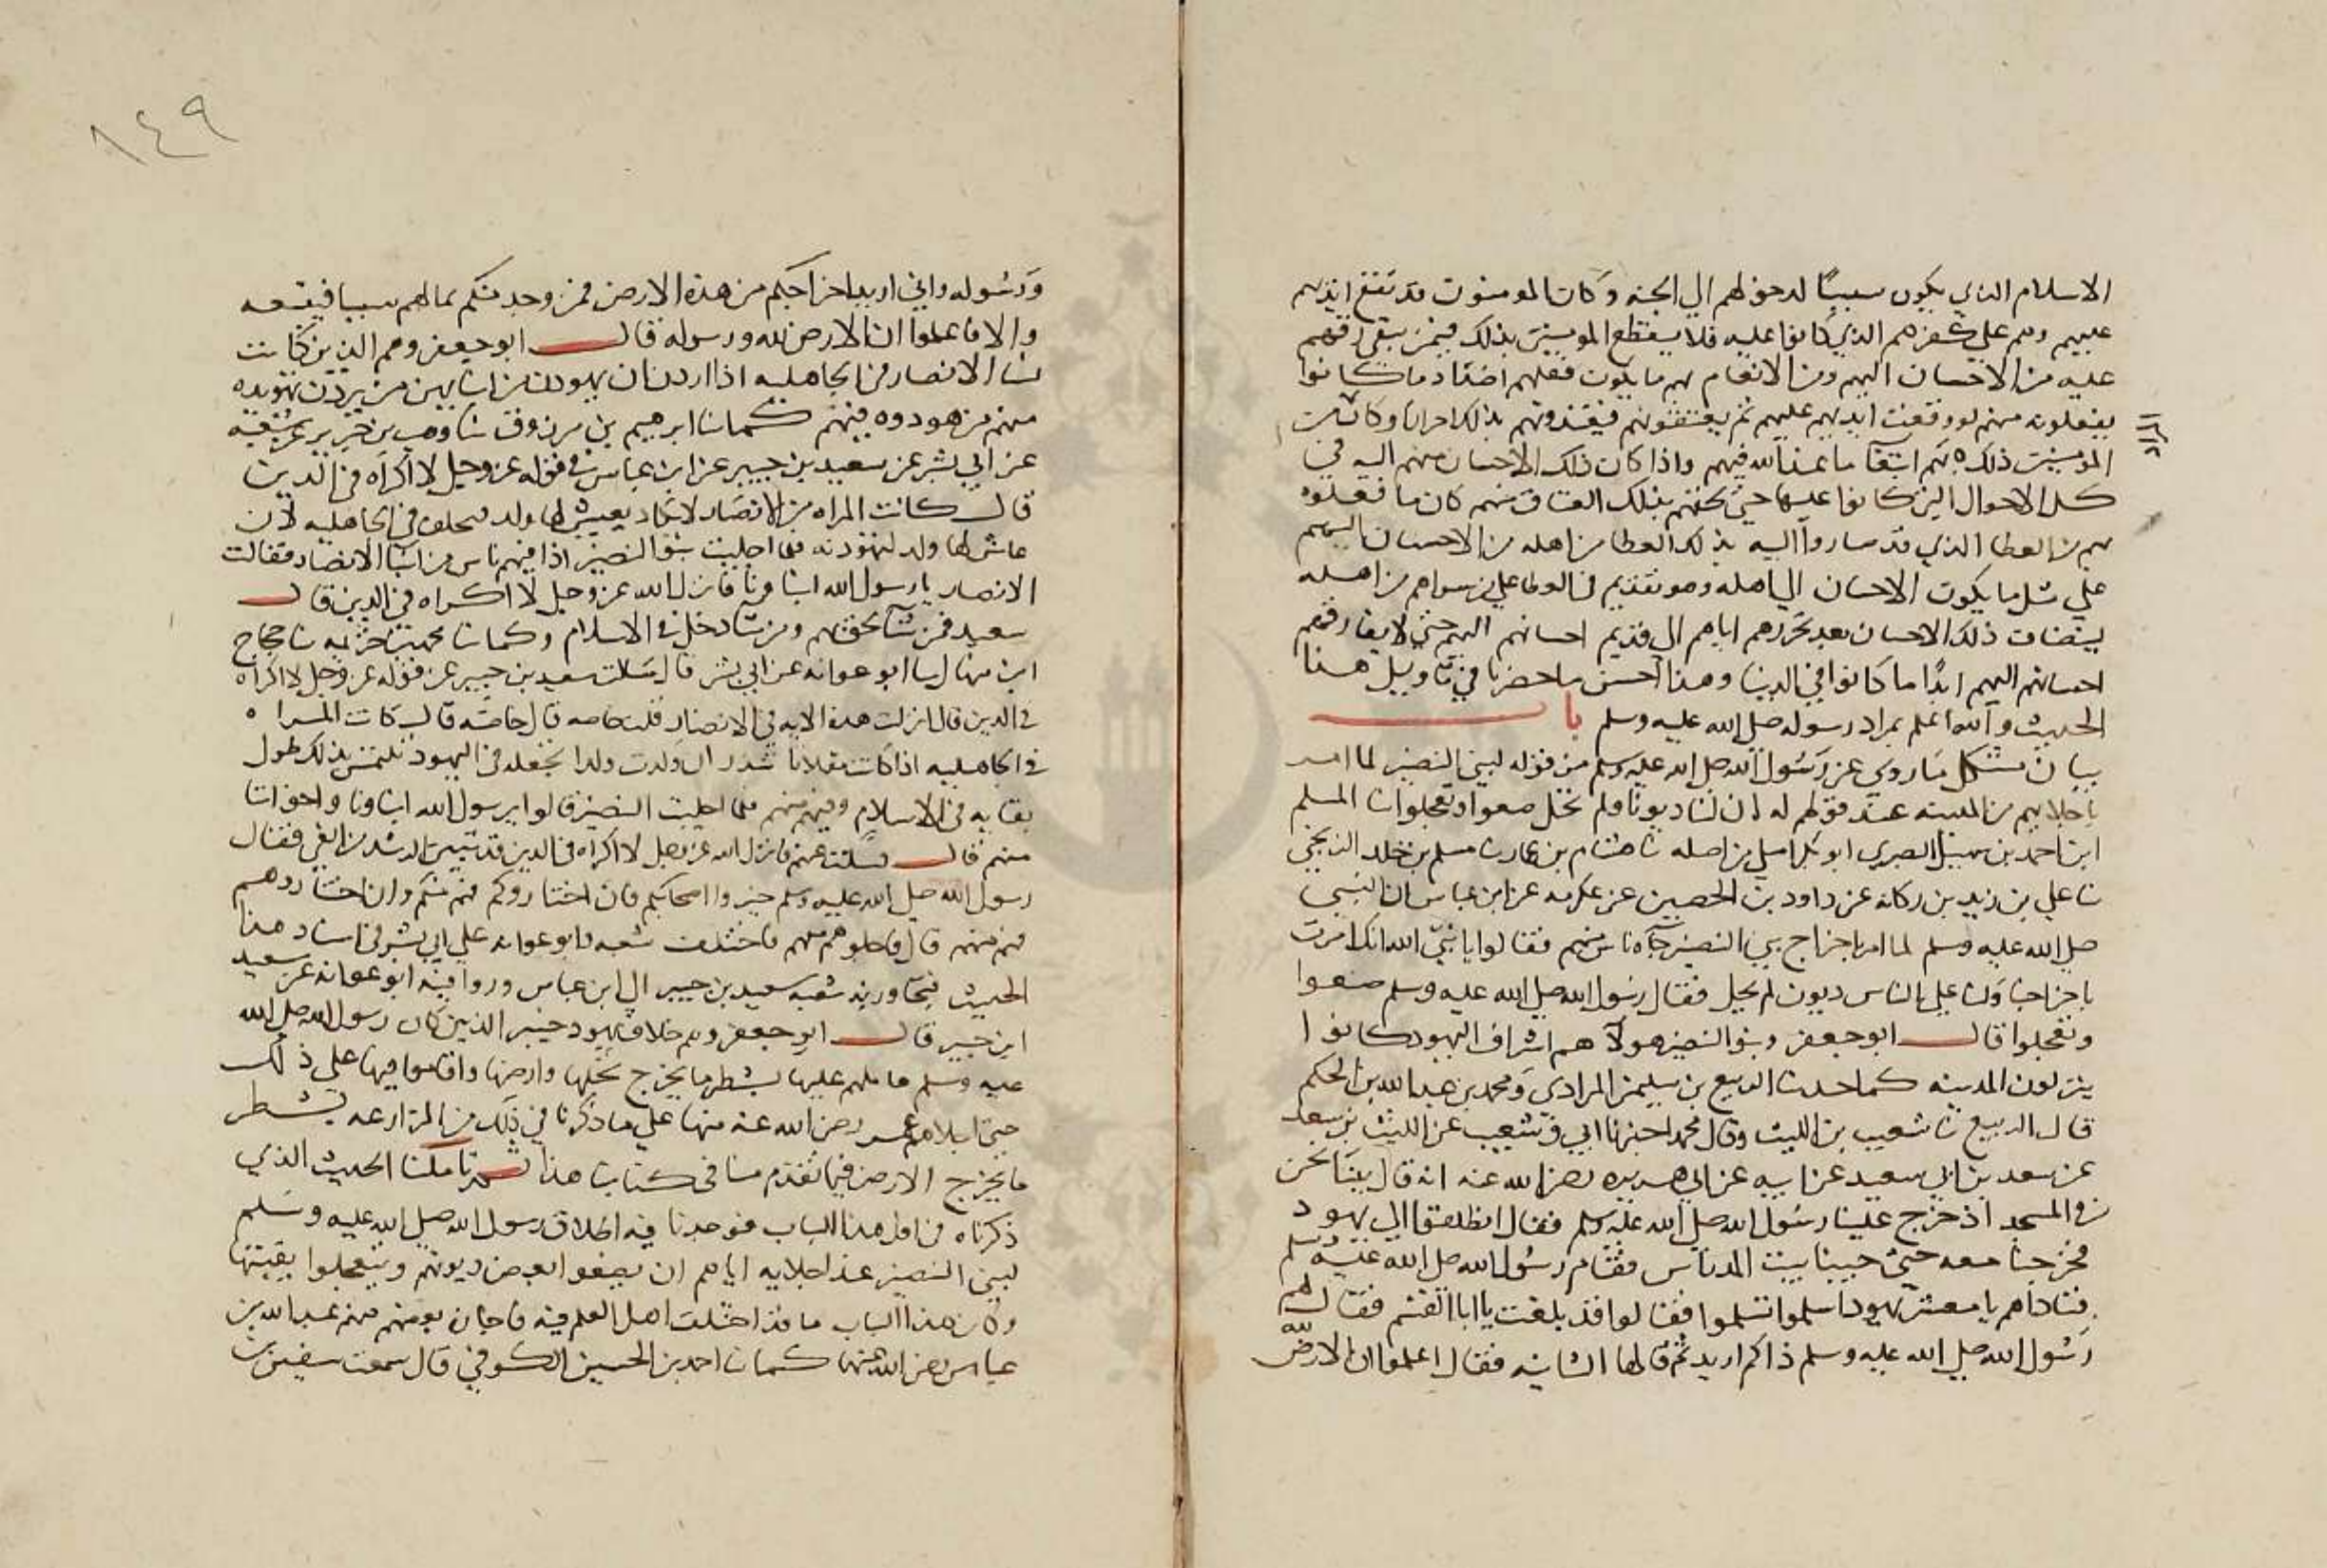 الاسلام الذي يكون سببًا لدخولهم الي الجنه وكان المومنون قد تقع ايديهم
عليهم وهم علي كفرهم الذي كانوا عليه فلا يقطع المومنين بذلك فيمن بقي رقهم
عليه من الاحسان اليهم ومن الانعام بهم ما يكون فعلهم اضداد ما كانوا
يفعلونه منهم لو وقعت ايديهم عليهم ثم يعتقونهم فيقذونهم بذلك احرارا وكانت
المومنين ذلك بهم ابتغا ما عند الله فيهم واذا كان ذلك الاحسان منهم اليه في
كل الاحوال التي كانوا عليها حتي لحقهم بذلك العتاق منهم كان ما فعلوه
بهم من العطا الذي قد صاروا اليه بذلك العطا من اهله من الاحسان اليهم
علي مثل ما يكون الاحسان الي اهله وهو تقديم في العطا علي من سواهم من اهله
يضاف ذلك الاحسان بعد تحررهم اياهم الي قديم احسانهم اليهم حتي لا يفارقهم
احسانهم اليهم ابدًا ما كانوا في الدنيا وهذا احسن ما حضرنا في تاويل هذا
الحديث والله اعلم بمراد رسوله صلي الله عليه وسلم باب
بيان مشكل ما روي عن رسول الله صلي الله عليه وسلم من قوله لبني النضير لما امر
باجلايهم من المدينه عند قولهم له ان لنا ديونا ولم تحل ضعوا وتعجلوا نا المسلم
ابن احمد بن سهيل البصري ابو كامل من اصله نا هشام بن عمار نا مسلم بن خلد الزنجي
نا علي بن زيد بن ركانه عن داود بن الحصين عن عكرمه عن ابن عباس ان النبي
صلي الله عليه وسلم لما امر باخراج بني النضير جآه ناس منهم فقالوا يا نبي الله انك امرت
باخراجنا ولنا علي الناس ديون لم تحل فقال رسول الله صلي الله عليه وسلم ضعوا
وتعجلوا قال ابو جعفر وبنو النضير هولآ هم اشراف اليهود كانوا
ينزلون المدينه كما حدثنا الربيع بن سليمن المرادي ومحمد بن عبد الله بن الحكم
قال الربيع نا شعيب بن الليث وقال محمد اخبرنا ابي وشعيب عن الليث بن سعد
عن سعد بن ابي سعيد عن ابيه عن ابي هريره رضي الله عنه انه قال بينا نحن
في المسجد اذ خرج علينا رسول الله صلي الله عليه وسلم فقال انطلقوا الي يهود
فخرجنا معه حتي جينا بيت المدراس فقام رسول الله صلي الله عليه وسلم
فناداهم يا معشر يهود اسلموا تسلموا فقالوا قد بلغت يا ابا القسم فقال لهم
رسول الله صلي الله عليه وسلم ذاكم اريد ثم قالها الثانيه فقال اعلموا ان الارض لله
١٤٩
ورسوله واني اريد اخراجكم من هذه الارض فمن وجد منكم بماله سببا فيبعه
والا فاعلموا ان الارض لله ورسوله قال ابو جعفر وهم الذين كانت
نسا الانصار في الجاهليه اذا اردن ان يهودن من ابنايهن من يردن تهويده
منهم من هودوه فيهم كما نا ابرهيم بن مرزوق نا وهب بن جرير عن شعبه
عن ابي بشر عن سعيد بن جبير عن ابن عباس في قوله عز وجل لا اكراه في الدين
قال كانت المراه من الانصار لا يكاد يعيش لها ولد فتحلف في الجاهليه لان
عاش لها ولد لتهودنه فلما اجليت بنو النضير اذا فيهم ناس من ابنا الانصار فقالت
الانصار يا رسول الله ابناونا فانزل الله عز وجل لا اكراه في الدين قال
سعيد فمن شآ لحق بهم ومن شا دخل في الاسلام وكما نا محمد بن خزيمه نا حجاج
ابن منهال نا ابو عوانه عن ابي بشر قال سالت سعيد بن جبير عن قوله عز وجل لا اكراه
في الدين قال انزلت هذه الايه في الانصار قلت خاصه قال خاصه قال كانت المراه
في الجاهليه اذا كانت مقلاتا تنذر ان ولدت ولدا تجعله في اليهود تلتمس بذلك طول
بقايه فجا الاسلام وفيهم منهم فلما اجليت النضير قالوا يرسول الله ابناونا واخواننا
منهم قال فسكت عنهم فانزل الله عز وجل لا اكراه في الدين قد تبين الرشد من الغي فقال
رسول الله صلي الله عليه وسلم خيروا اصحابكم فان اختاروكم فهم منكم وان اختاروهم
فهم منهم قال فاجلوهم معهم فاختلف شعبه وابو عوانه علي ابي بشر في اسناد هذا
الحديث فتجاوز به شعبه سعيد بن جبير الي ابن عباس وروا فيه ابو عوانه عن سعيد
ابن جبير قال ابو جعفر وهم خلاف يهود خيبر الذين كان رسول الله صلي الله
عليه وسلم عاملهم عليها بشطر ما يخرج نخلها وارضها واقاموا فيها علي ذلك
حتي اجلاهم عمر رضي الله عنه منها علي ما ذكرنا في ذلك من المزارعه بشطر
ما يخرج الارض فيما تقدم منا في كتابنا هذا ثم تاملنا الحديث الذي
ذكرناه في اول هذا الباب فوجدنا فيه اطلاق رسول الله صلي الله عليه وسلم
لبني النضير عند اجلايه اياهم ان يضعوا بعض ديونهم ويتعجلوا بقيتها
وكان هذا الباب ما قد اختلف اهل العلم فيه فاجازه بعضهم منهم عبد الله بن
عباس رضي الله عنهما كما نا احمد بن الحسين الكوفي قال سمعت سفين بن